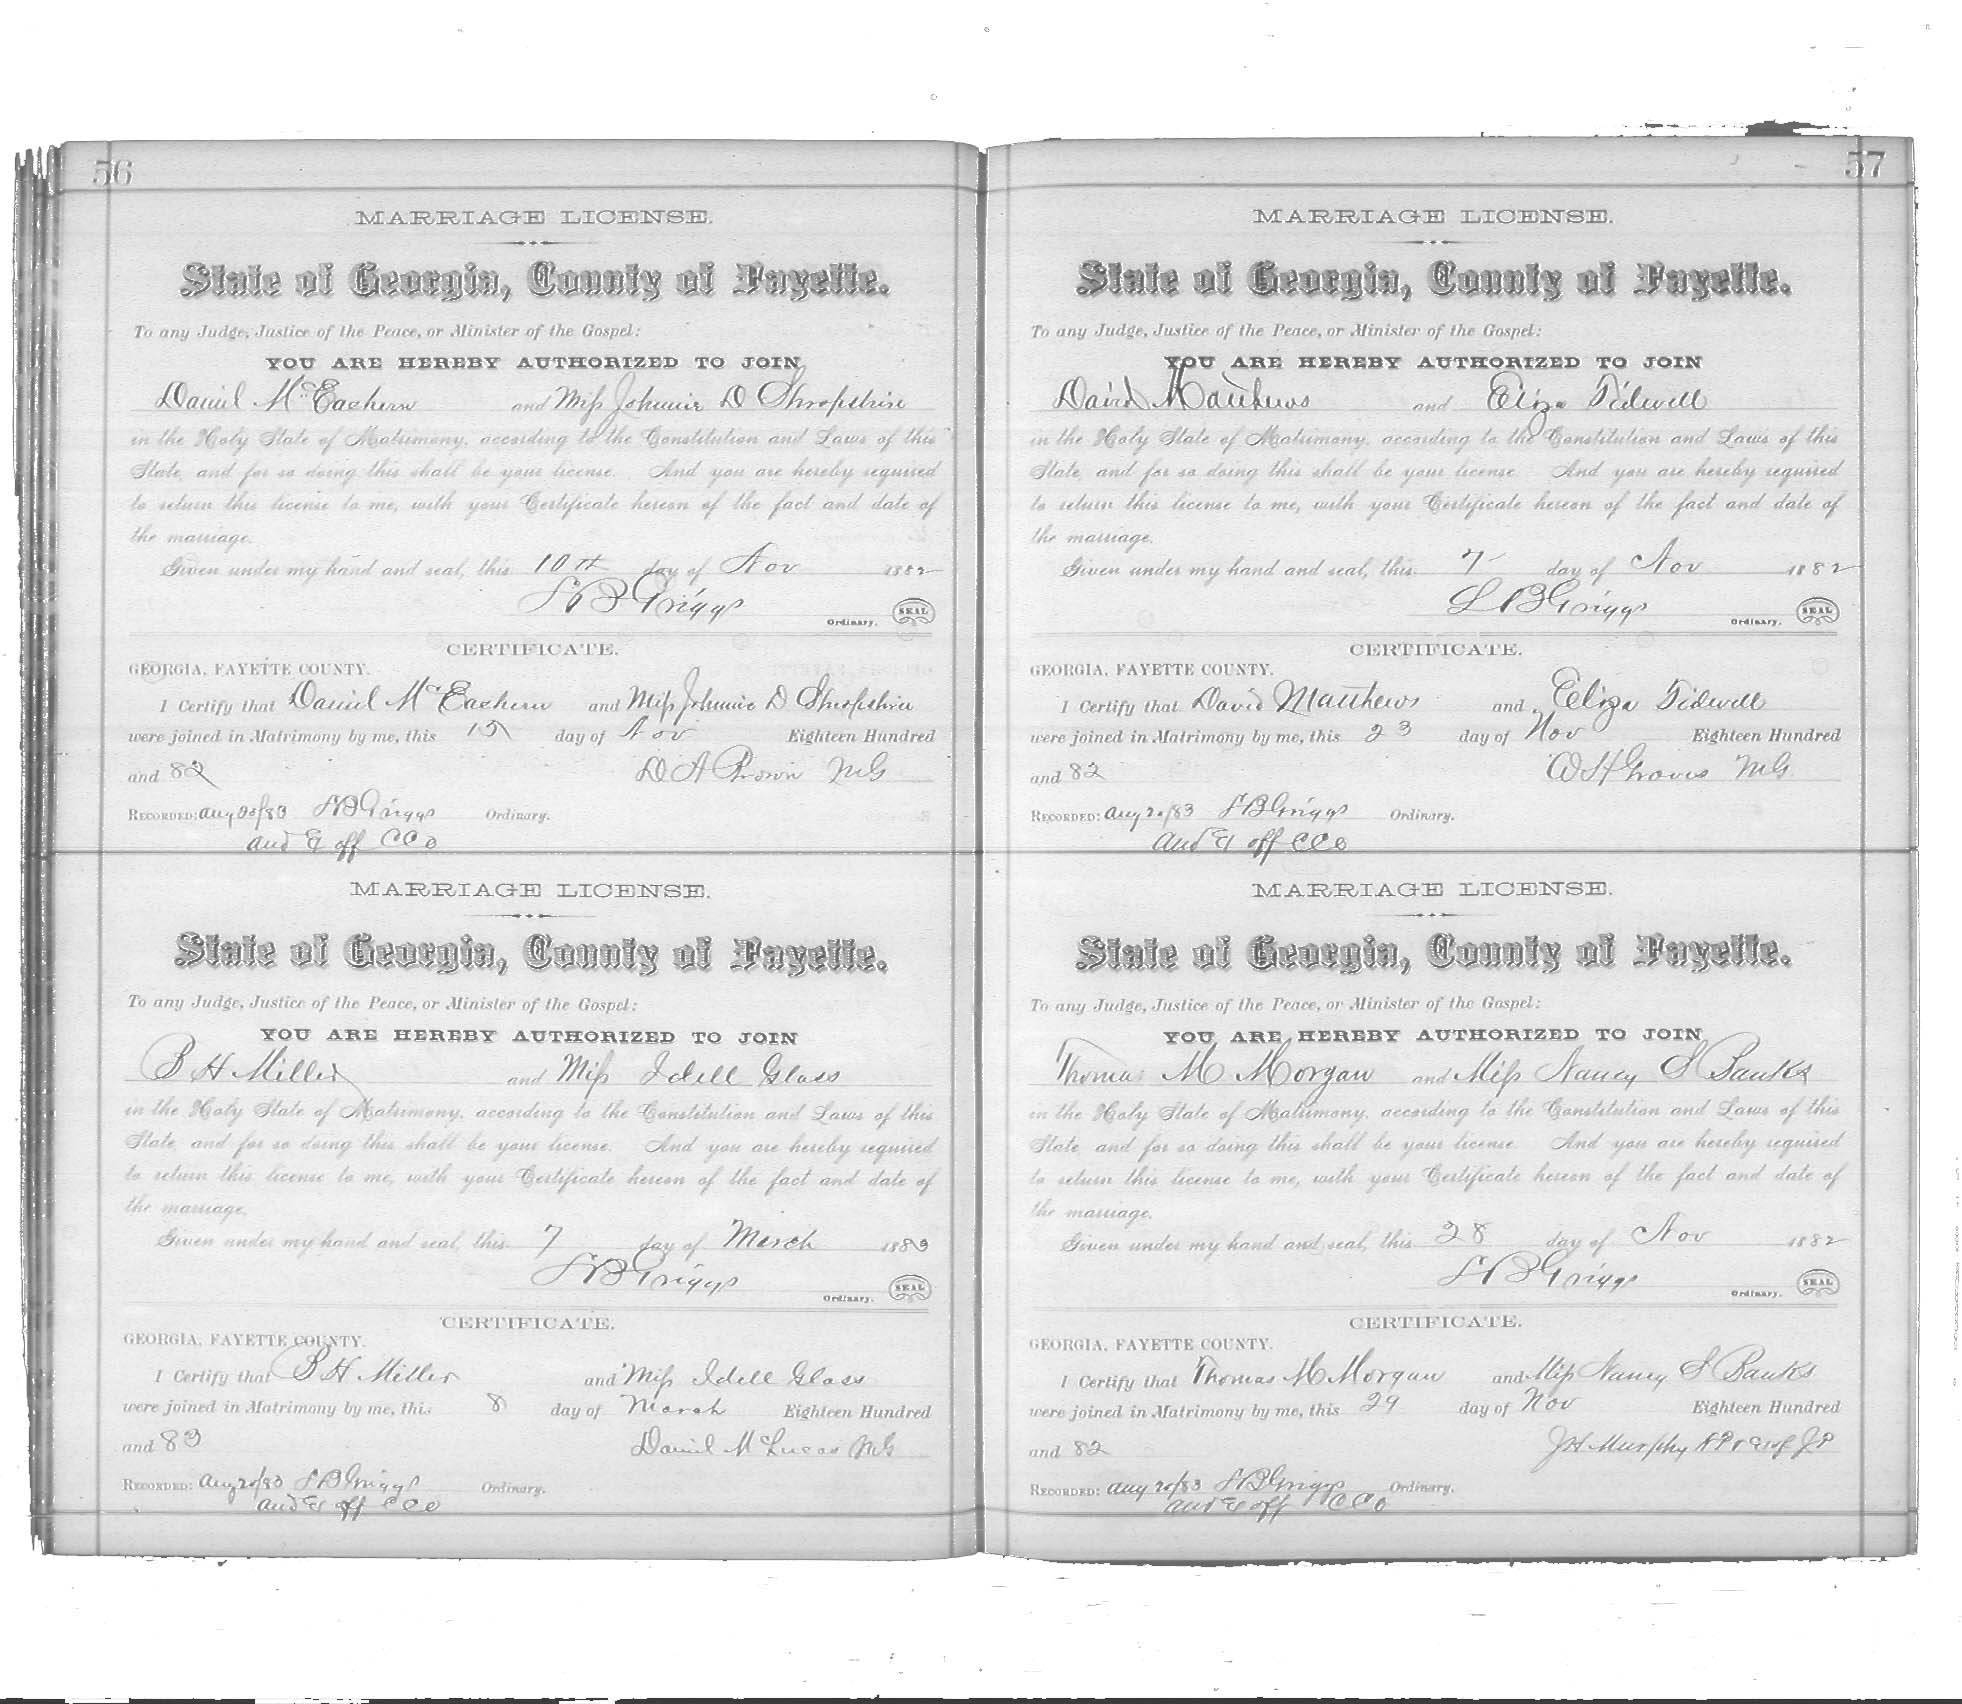 56
MARRIAGE LICENSE.
State of Georgia, County of Fayette.
To any Judge, Justice of the Peace, or Minister of the Gospel:
YOU ARE HEREBY AUTHORIZED TO JOIN
Daniel McEachern and Miss Johnnie D Shropshire
in the Holy State of Matrimony, according to the Constitution and Laws of this
State, and for so doing this shall be your license. And you are hereby required
to return this license to me, with your Certificate hereon of the fact and date of
the marriage.
Given under my hand and seal, this 10th day of Nov 1882
L B Griggs
Ordinary. SEAL
CERTIFICATE.
GEORGIA, FAYETTE COUNTY.
I Certify that Daniel McEachern and Miss Johnnie D Shropshire
were joined in Matrimony by me, this 15 day of Nov Eighteen Hundred
and 82 D A Brown MG
RECORDED: Aug 20/83 L B Griggs Ordinary.
and Ex off CCO
MARRIAGE LICENSE.
State of Georgia, County of Fayette.
To any Judge, Justice of the Peace, or Minister of the Gospel:
YOU ARE HEREBY AUTHORIZED TO JOIN
B H Miller and Miss Idell Glass
in the Holy State of Matrimony, according to the Constitution and Laws of this
State, and for so doing this shall be your license. And you are hereby required
to return this license to me, with your Certificate hereon of the fact and date of
the marriage.
Given under my hand and seal, this 7 day of March 1883
L B Griggs
Ordinary. SEAL
CERTIFICATE.
GEORGIA, FAYETTE COUNTY.
I Certify that B H Miller and Miss Idell Glass
were joined in Matrimony by me, this 8 day of March Eighteen Hundred
and 83 Daniel McLucas MG
RECORDED: Aug 20/83 L B Griggs Ordinary.
and Ex off CCO
57
MARRIAGE LICENSE.
State of Georgia, County of Fayette.
To any Judge, Justice of the Peace, or Minister of the Gospel:
YOU ARE HEREBY AUTHORIZED TO JOIN
David Matthews and Eliza Tidwell
in the Holy State of Matrimony, according to the Constitution and Laws of this
State, and for so doing this shall be your license. And you are hereby required
to return this license to me, with your Certificate hereon of the fact and date of
the marriage.
Given under my hand and seal, this 7 day of Nov 1882
L B Griggs
Ordinary. SEAL
CERTIFICATE.
GEORGIA, FAYETTE COUNTY.
I Certify that David Matthews and Eliza Tidwell
were joined in Matrimony by me, this 23 day of Nov Eighteen Hundred
and 82 W H Graves MG
RECORDED: Aug 20/83 L B Griggs Ordinary.
and Ex off CCO
MARRIAGE LICENSE.
State of Georgia, County of Fayette.
To any Judge, Justice of the Peace, or Minister of the Gospel:
YOU ARE HEREBY AUTHORIZED TO JOIN
Thomas M Morgan and Miss Nancy S Banks
in the Holy State of Matrimony, according to the Constitution and Laws of this
State, and for so doing this shall be your license. And you are hereby required
to return this license to me, with your Certificate hereon of the fact and date of
the marriage.
Given under my hand and seal, this 28 day of Nov 1882
L B Griggs
Ordinary. SEAL
CERTIFICATE.
GEORGIA, FAYETTE COUNTY.
I Certify that Thomas M Morgan and Miss Nancy S Banks
were joined in Matrimony by me, this 29 day of Nov Eighteen Hundred
and 82 J H Murphy JP
RECORDED: Aug 20/83 L B Griggs Ordinary.
and Ex off CCO